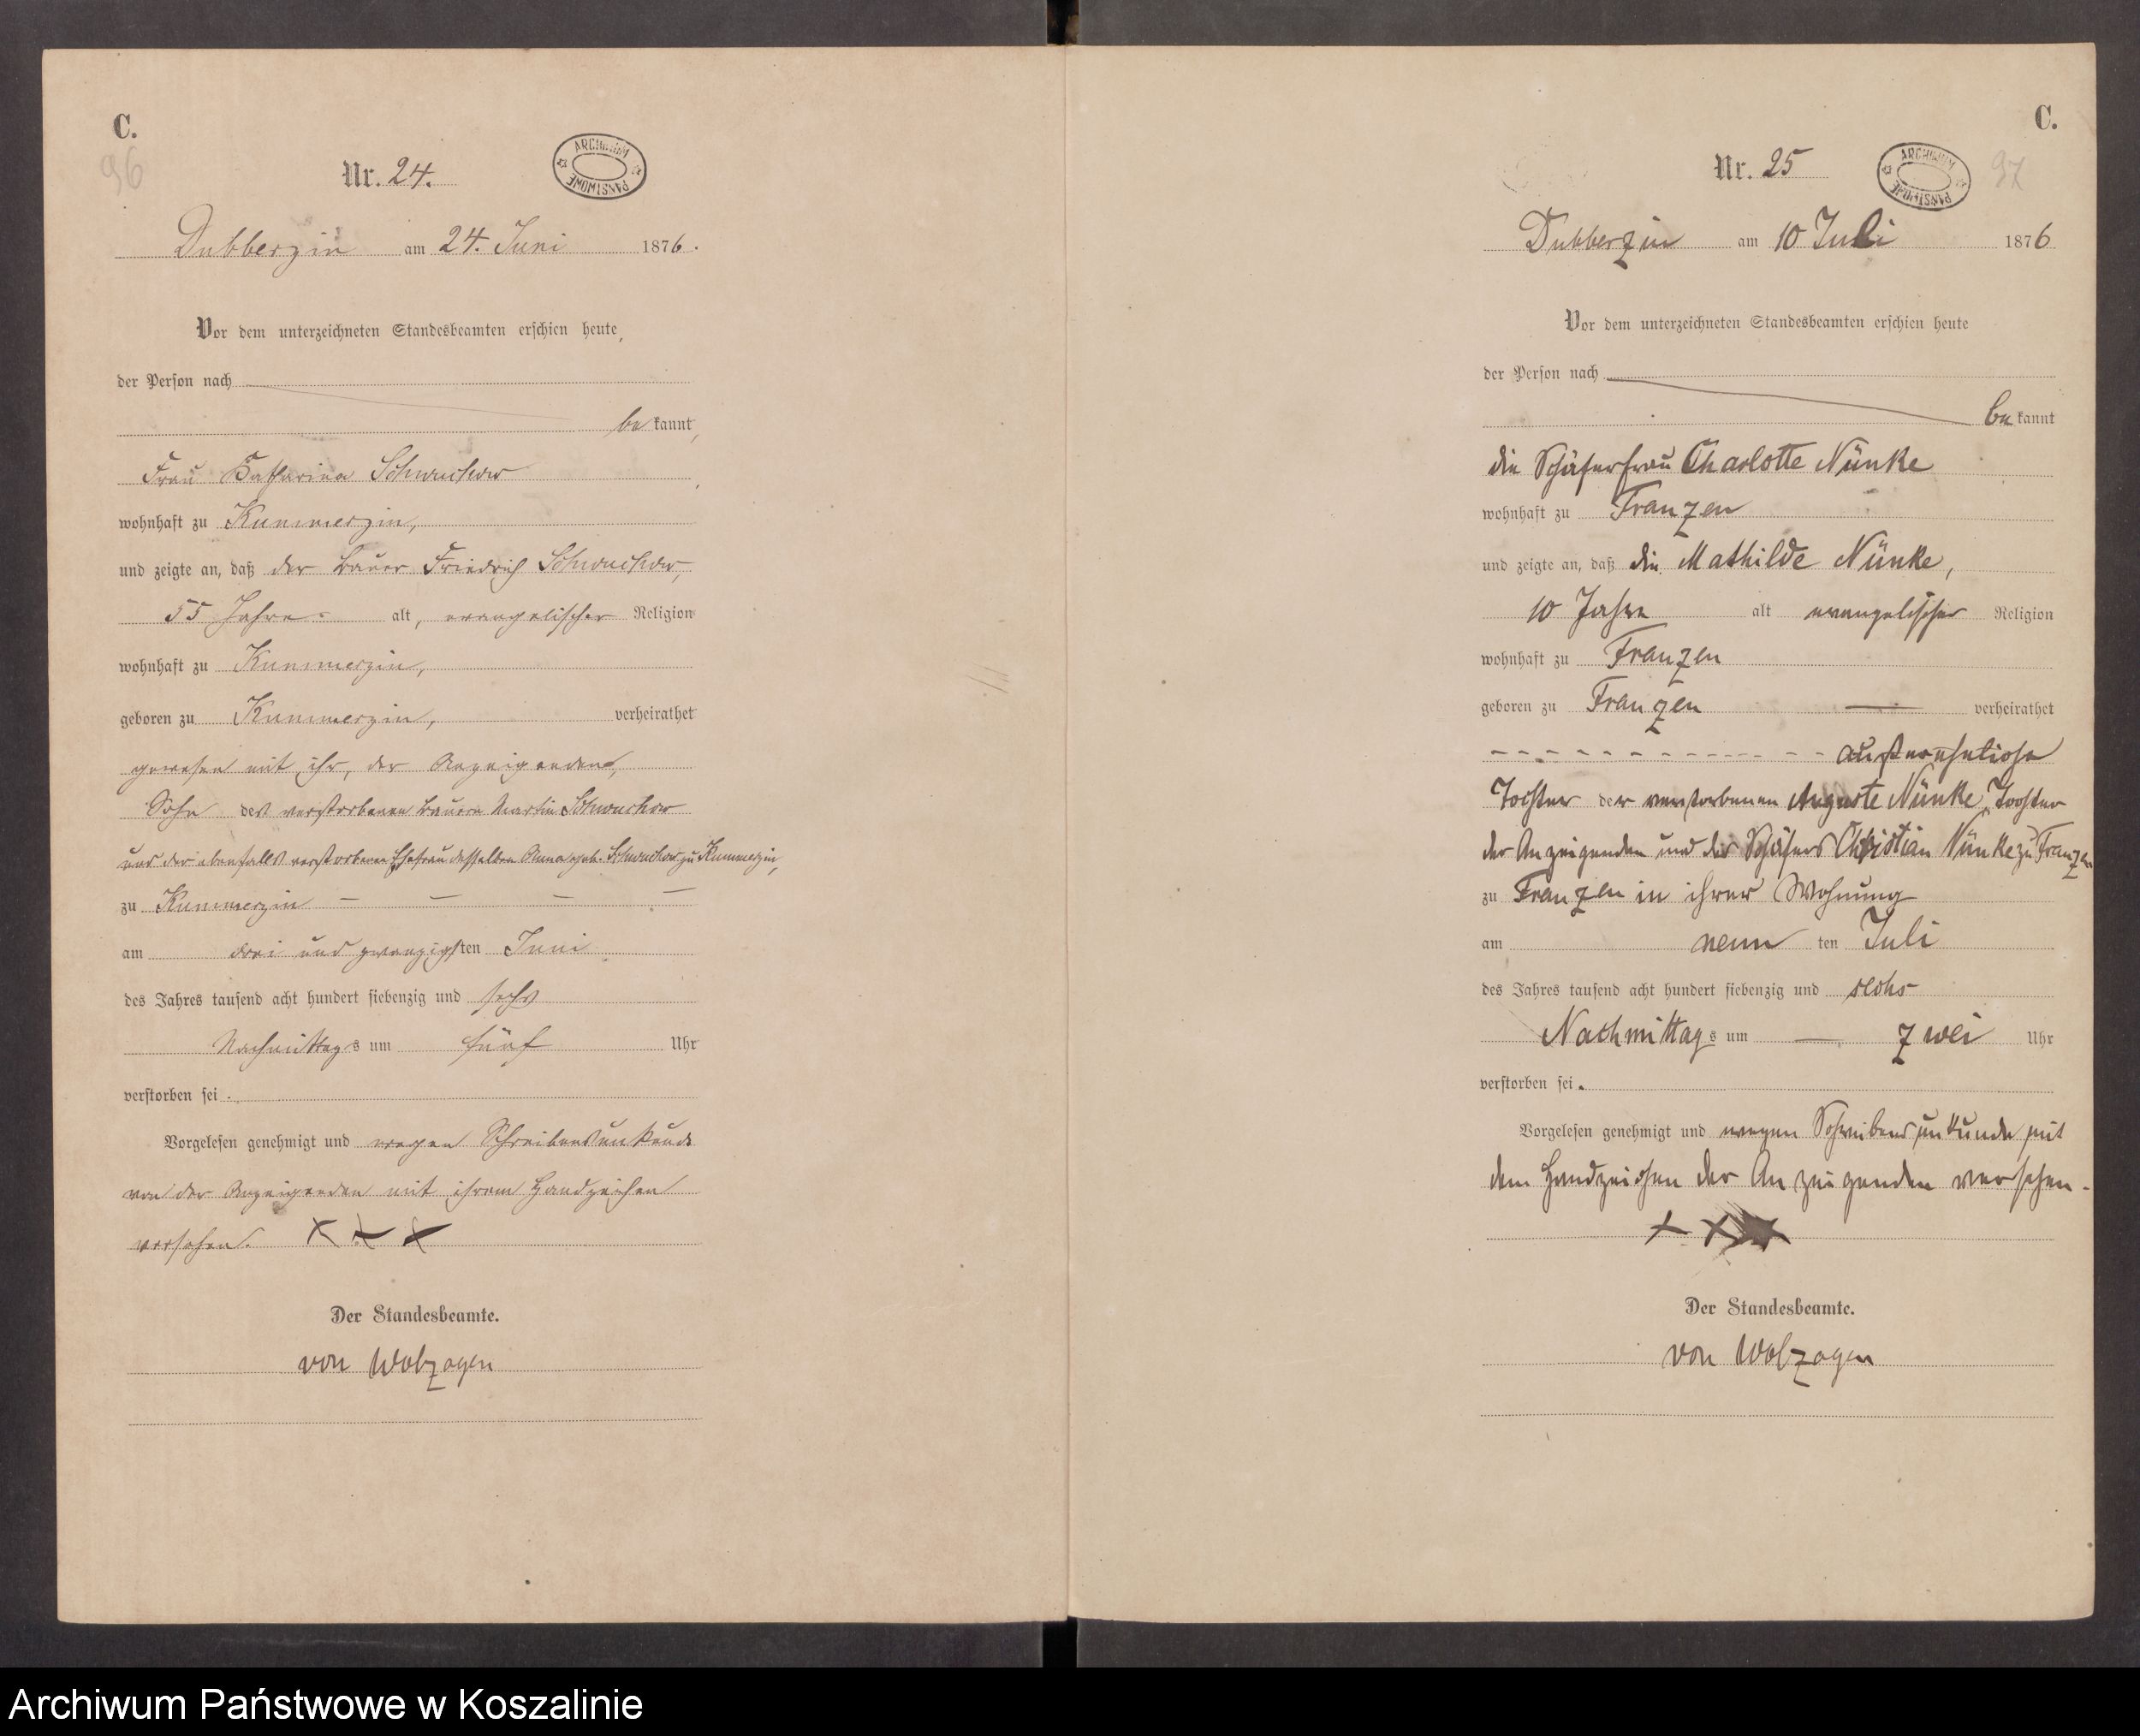 C.
96
Nr. 24.
ARCHIWUM PAŃSTWOWE
Dubberzin am 24. Juni 1876.
Vor dem unterzeichneten Standesbeamten erschien heute,
der Person nach
bekannt,
Frau Catharina Schwuchow,
wohnhaft zu Kummerzin,
und zeigte an, daß der Bauer Friedrich Schwuchow,
55 Jahre alt, evangelischer Religion
wohnhaft zu Kummerzin,
geboren zu Kummerzin, verheirathet
gewesen mit ihr, der Anzeigenden,
Sohn des verstorbenen Bauern Martin Schwuchow
und der ebenfalls verstorbenen Ehefrau desselben Anna geb. Schwuchow zu Kummerzin,
zu Kummerzin — — — —
am drei und zwanzigsten Juni
des Jahres tausend acht hundert siebenzig und sechs
Nachmittags um fünf Uhr
verstorben sei.
Vorgelesen genehmigt und wegen Schreibensunkunde
von der Anzeigenden mit ihrem Handzeichen
versehen. X X X
Der Standesbeamte.
von Wolzogen
C.
97
Nr. 25
ARCHIWUM PAŃSTWOWE
Dubberzin am 10 Juli 1876
Vor dem unterzeichneten Standesbeamten erschien heute
der Person nach
bekannt
die Schäferfrau Charlotte Nünke
wohnhaft zu Franzen
und zeigte an, daß die Mathilde Nünke,
10 Jahre alt evangelischer Religion
wohnhaft zu Franzen
geboren zu Franzen — verheirathet
- - - - - - - - - - - - - außereheliche
Tochter der verstorbenen Auguste Nünke, Tochter
der Anzeigenden und des Schäfers Christian Nünke zu Franzen
zu Franzen in ihrer Wohnung
am neun ten Juli
des Jahres tausend acht hundert siebenzig und sechs
Nachmittags um — zwei Uhr
verstorben sei.
Vorgelesen genehmigt und wegen Schreibensunkunde mit
dem Handzeichen der Anzeigenden versehen.
X X X
Der Standesbeamte.
von Wolzogen
Archiwum Państwowe w Koszalinie